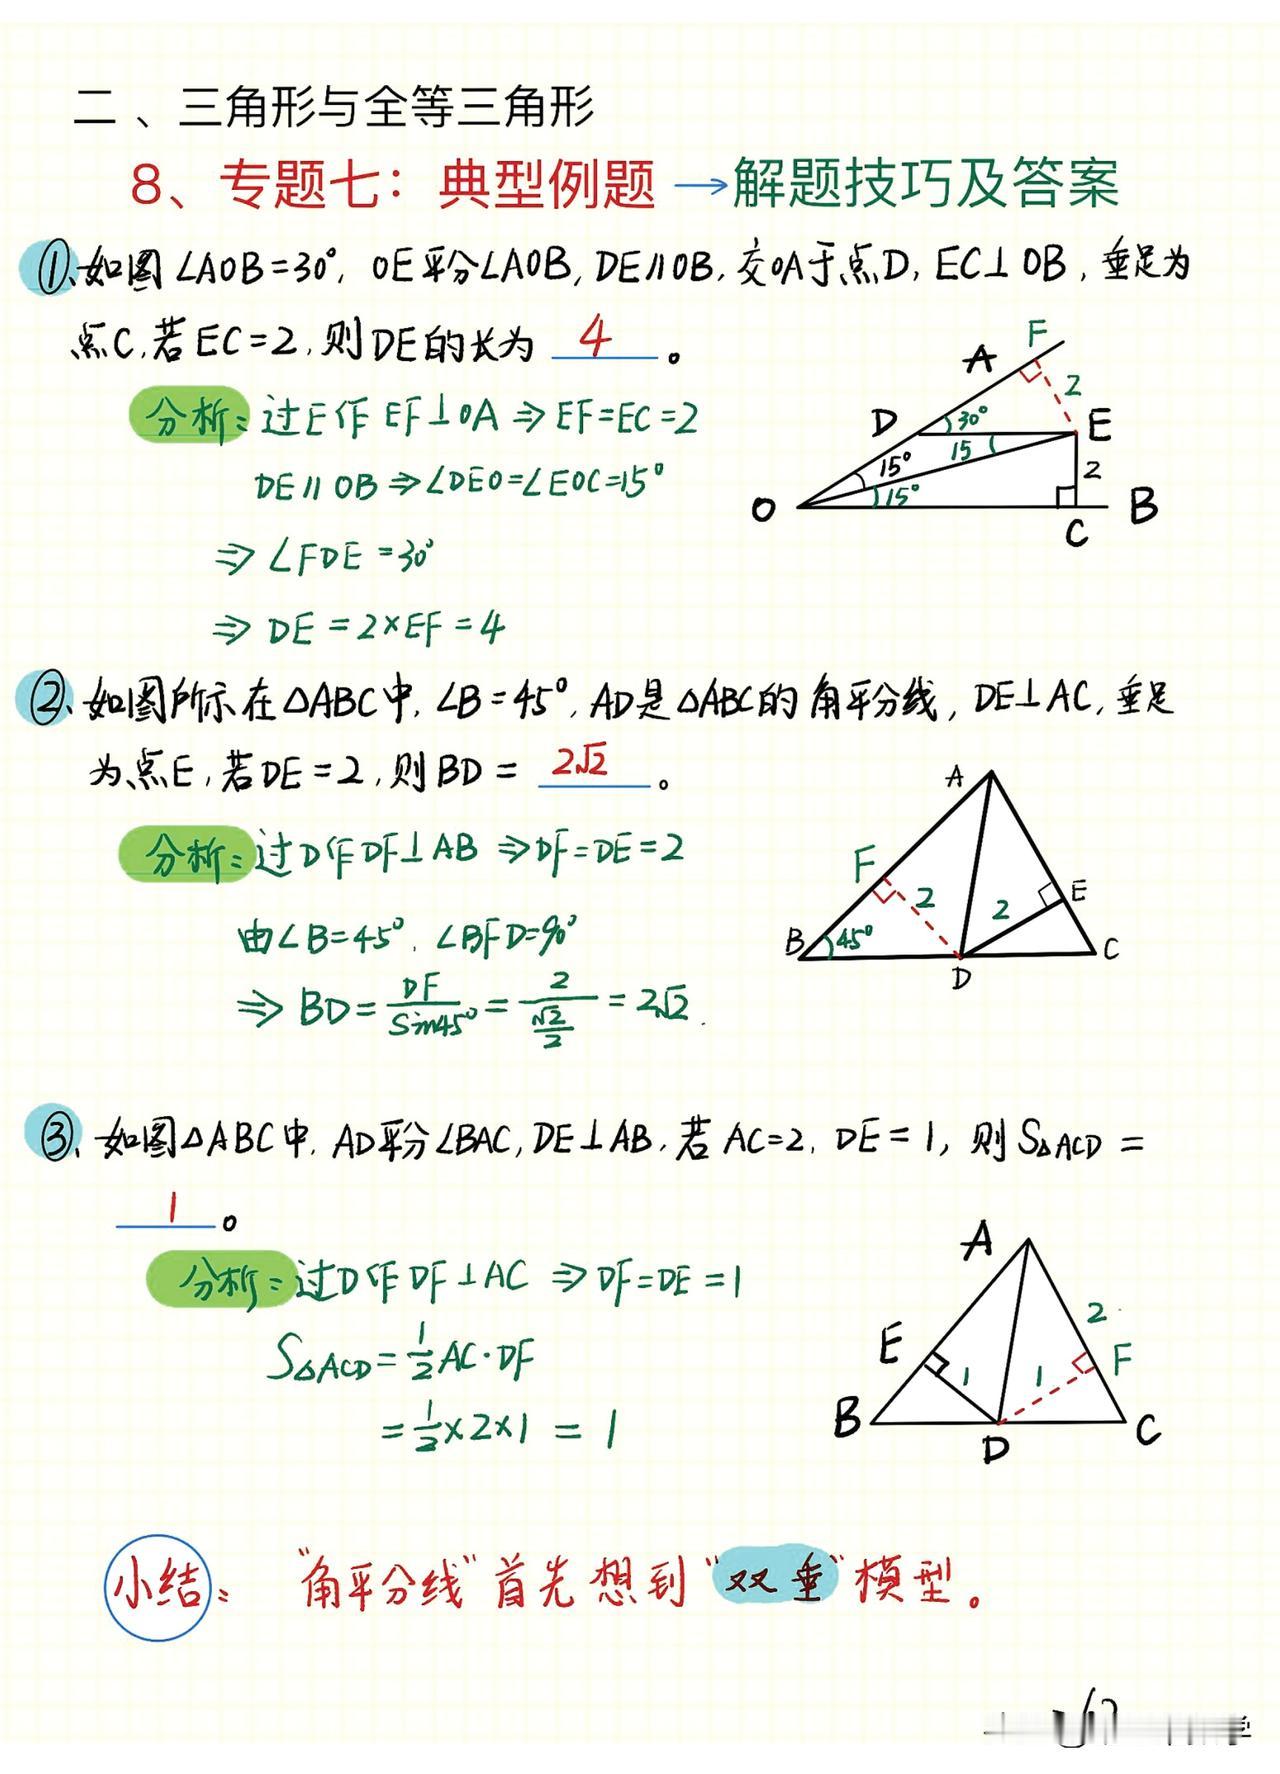 二、三角形与全等三角形
8、专题七：典型例题→解题技巧及答案
①、如图∠AOB=30°, OE平分∠AOB, DE∥OB, 交OA于点D, EC⊥OB, 垂足为
点C, 若EC=2, 则DE的长为 4 。
分析：过E作EF⊥OA ⇒ EF=EC=2
DE∥OB ⇒ ∠DEO=∠EOC=15°
⇒ ∠FDE=30°
⇒ DE=2×EF=4
A F
2
D 30° E
15° 15 2
O 15° C B
②、如图所示在△ABC中, ∠B=45°, AD是△ABC的角平分线, DE⊥AC, 垂足
为点E, 若DE=2, 则BD= 2√2 。
分析：过D作DF⊥AB ⇒ DF=DE=2
由∠B=45°, ∠BFD=90°
⇒ BD=DF/Sin45°=2/(√2/2)=2√2.
A
F 2 2 E
B 45° D C
③、如图△ABC中, AD平分∠BAC, DE⊥AB, 若AC=2, DE=1, 则S△ACD=
1 。
分析：过D作DF⊥AC ⇒ DF=DE=1
S△ACD=1/2AC·DF
=1/2×2×1=1
A
2
E 1 1 F
B D C
小结：“角平分线”首先想到“双垂”模型。